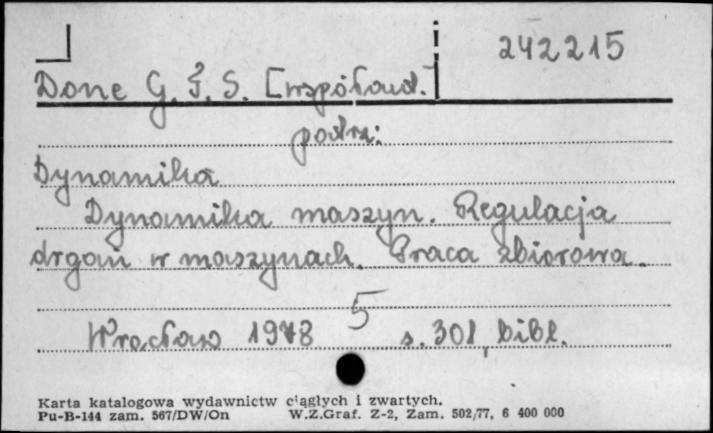 242215
Done G. J. S. [współaut.]
podrz:
Dynamika
Dynamika maszyn. Regulacja
drgań w maszynach. Praca zbiorowa.
5
Wrocław 1978 s. 301, bibl.
Karta katalogowa wydawnictw ciągłych i zwartych.
Pu-B-144 zam. 567/DW/On W.Z.Graf. Z-2, Zam. 502/77, 6 400 000